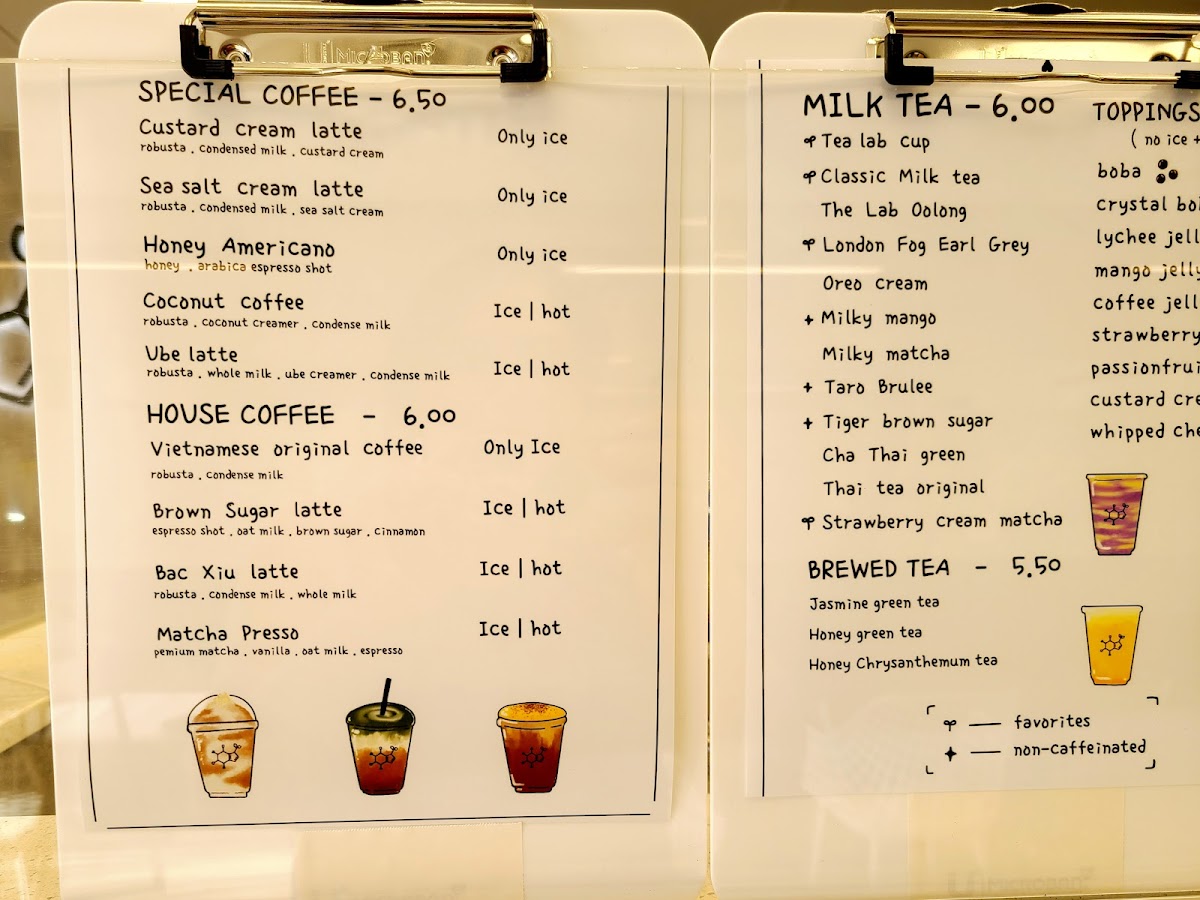 SPECIAL COFFEE - 6.50
Custard cream latte Only ice
robusta . condensed milk . custard cream
Sea salt cream latte Only ice
robusta . condensed milk . sea salt cream
Honey Americano Only ice
honey . arabica espresso shot
Coconut coffee Ice | hot
robusta . coconut creamer . condense milk
Ube latte Ice | hot
robusta . whole milk . ube creamer . condense milk
HOUSE COFFEE - 6.00
Vietnamese original coffee Only Ice
robusta . condense milk
Brown Sugar latte Ice | hot
espresso shot . oat milk . brown sugar . cinnamon
Bac Xiu latte Ice | hot
robusta . condense milk . whole milk
Matcha Presso Ice | hot
pemium matcha . vanilla . oat milk . espresso
MILK TEA - 6.00
Tea lab cup
Classic Milk tea
The Lab Oolong
London Fog Earl Grey
Oreo cream
+ Milky mango
Milky matcha
+ Taro Brulee
+ Tiger brown sugar
Cha Thai green
Thai tea original
Strawberry cream matcha
BREWED TEA - 5.50
Jasmine green tea
Honey green tea
Honey Chrysanthemum tea
— favorites
+ — non-caffeinated
TOPPINGS
( no ice +
boba
crystal
lychee
mango jelly
coffee
strawberry
custard
whipped